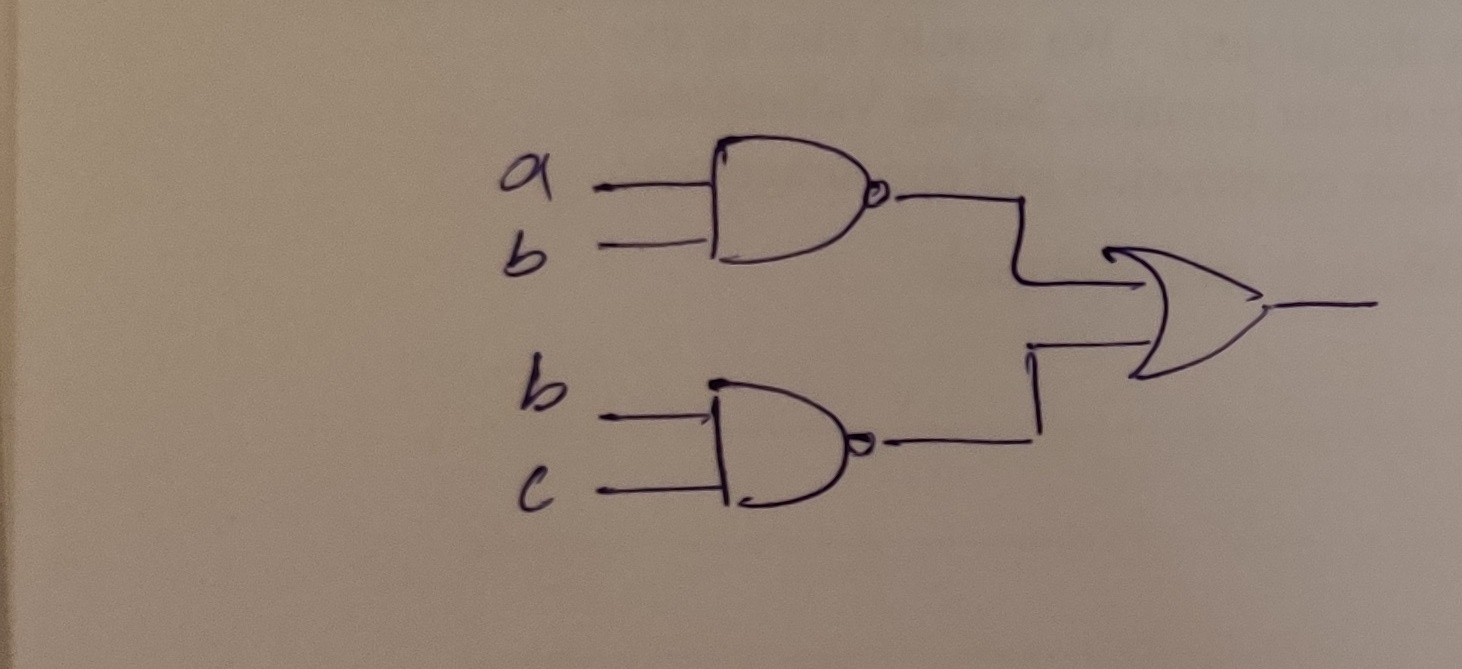 a
b
b
c